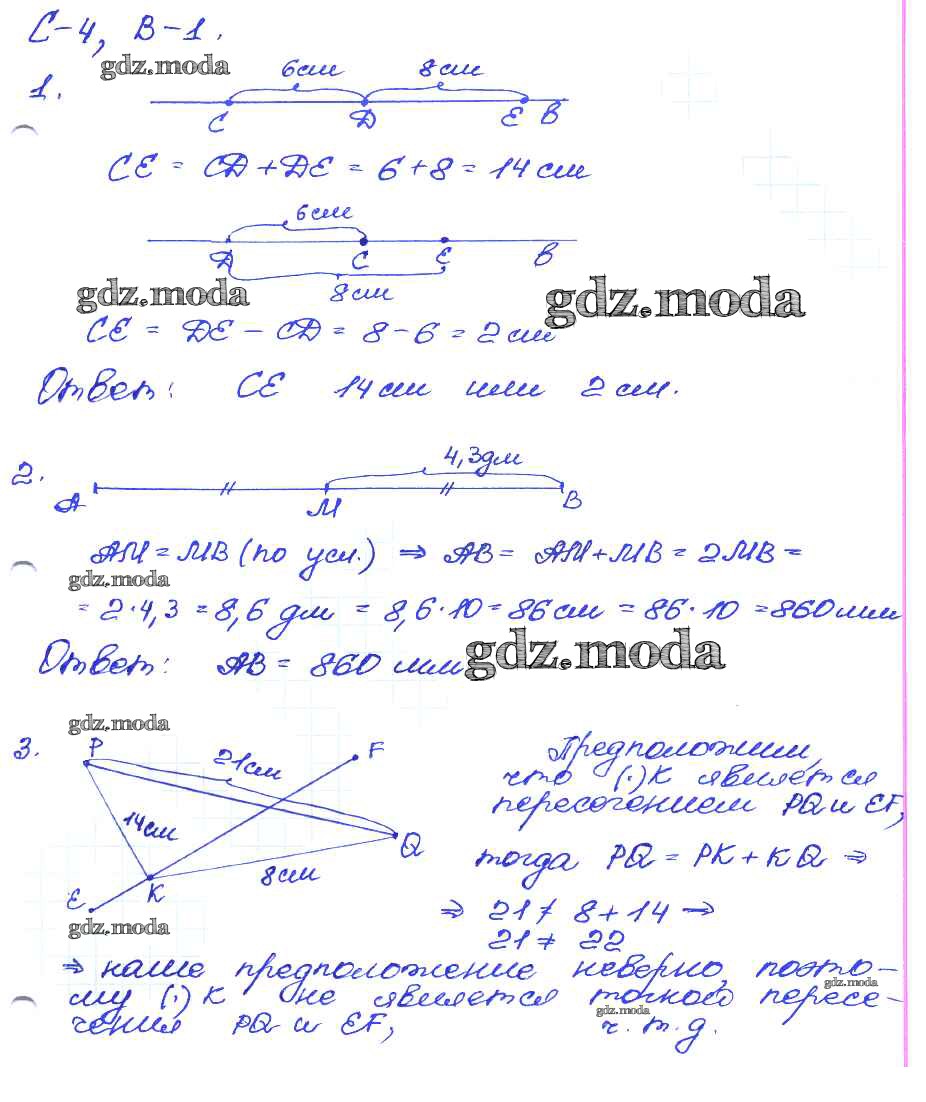 С-4, В-1.
gdz.moda
1.
6см 8см
C D E B
CE = CD + DE = 6 + 8 = 14 см
6см
D C E B
8см
gdz.moda gdz.moda
CE = DE - CD = 8 - 6 = 2 см
Ответ: CE 14 см или 2 см.
2.
4,3дм
A M B
AM = MB (по усл.) ⇒ AB = AM + MB = 2MB =
gdz.moda
= 2·4,3 = 8,6 дм = 8,6·10 = 86 см = 86·10 = 860 мм
Ответ: AB = 860 мм
gdz.moda
gdz.moda
3.
P F
21см
14см
Q
8см
E K
gdz.moda
Предположим,
что (·)K является
пересечением PQ и EF,
тогда PQ = PK + KQ ⇒
⇒ 21 ≠ 8 + 14 ⇒
21 ≠ 22
⇒ наше предположение неверно, поэто-
му (·) K не является точкой пересе-
gdz.moda
чения PQ и EF, ч.т.д.
gdz.moda